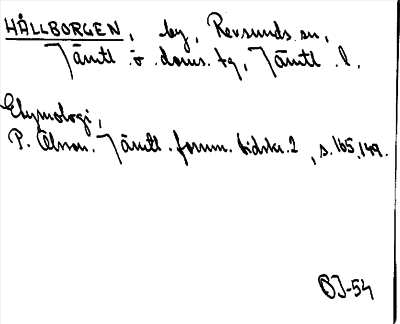 HÅLLBORGEN, by, Revsunds sn,
Jämtl. ö. doms. tg, Jämtl. l.
Etymologi,
P. Olsson. Jämtl. fornm. tidskr. 2, s. 165, 149.
OJ-54